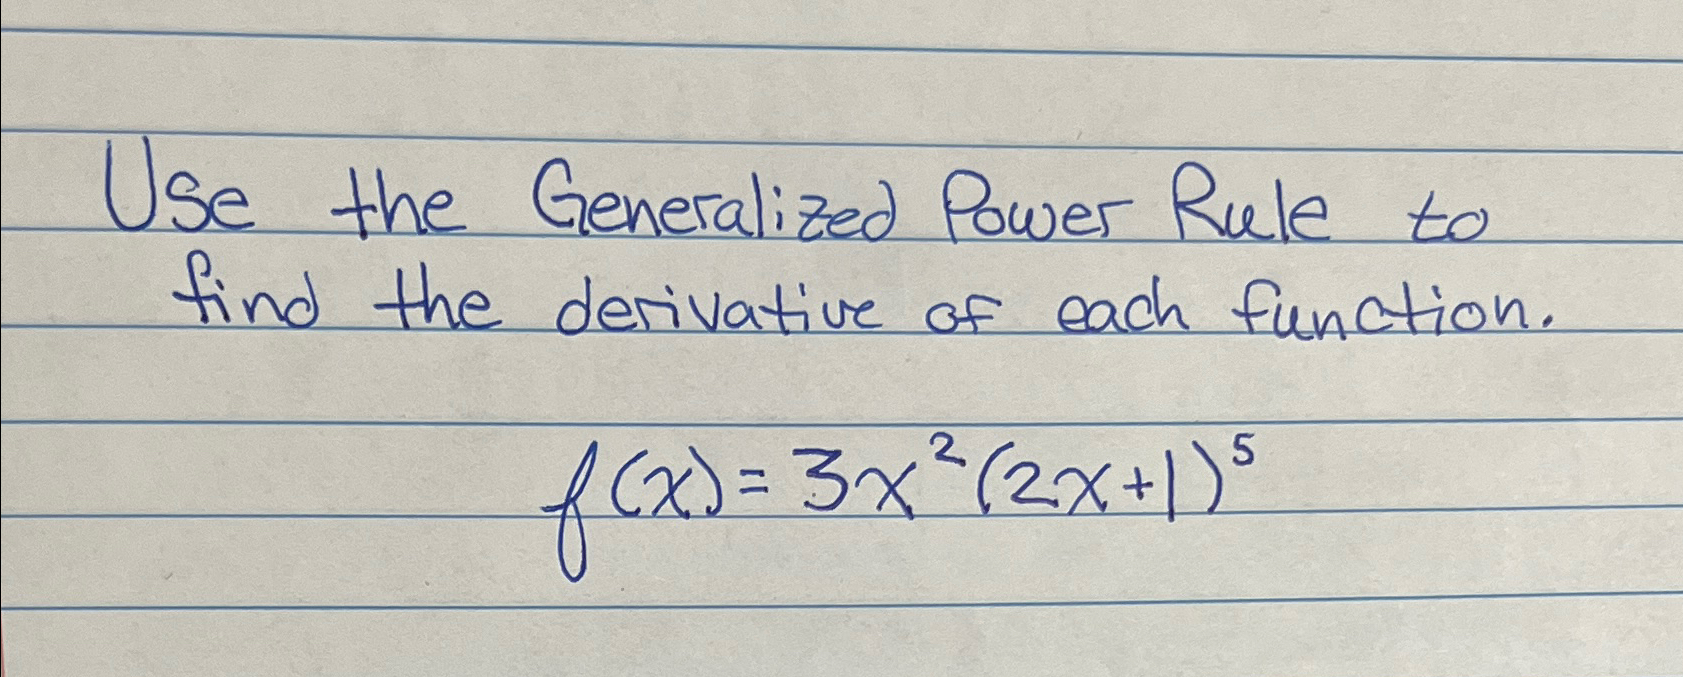 Use the Generalized Power Rule to
find the derivative of each function.
f(x) = 3x²(2x+1)⁵